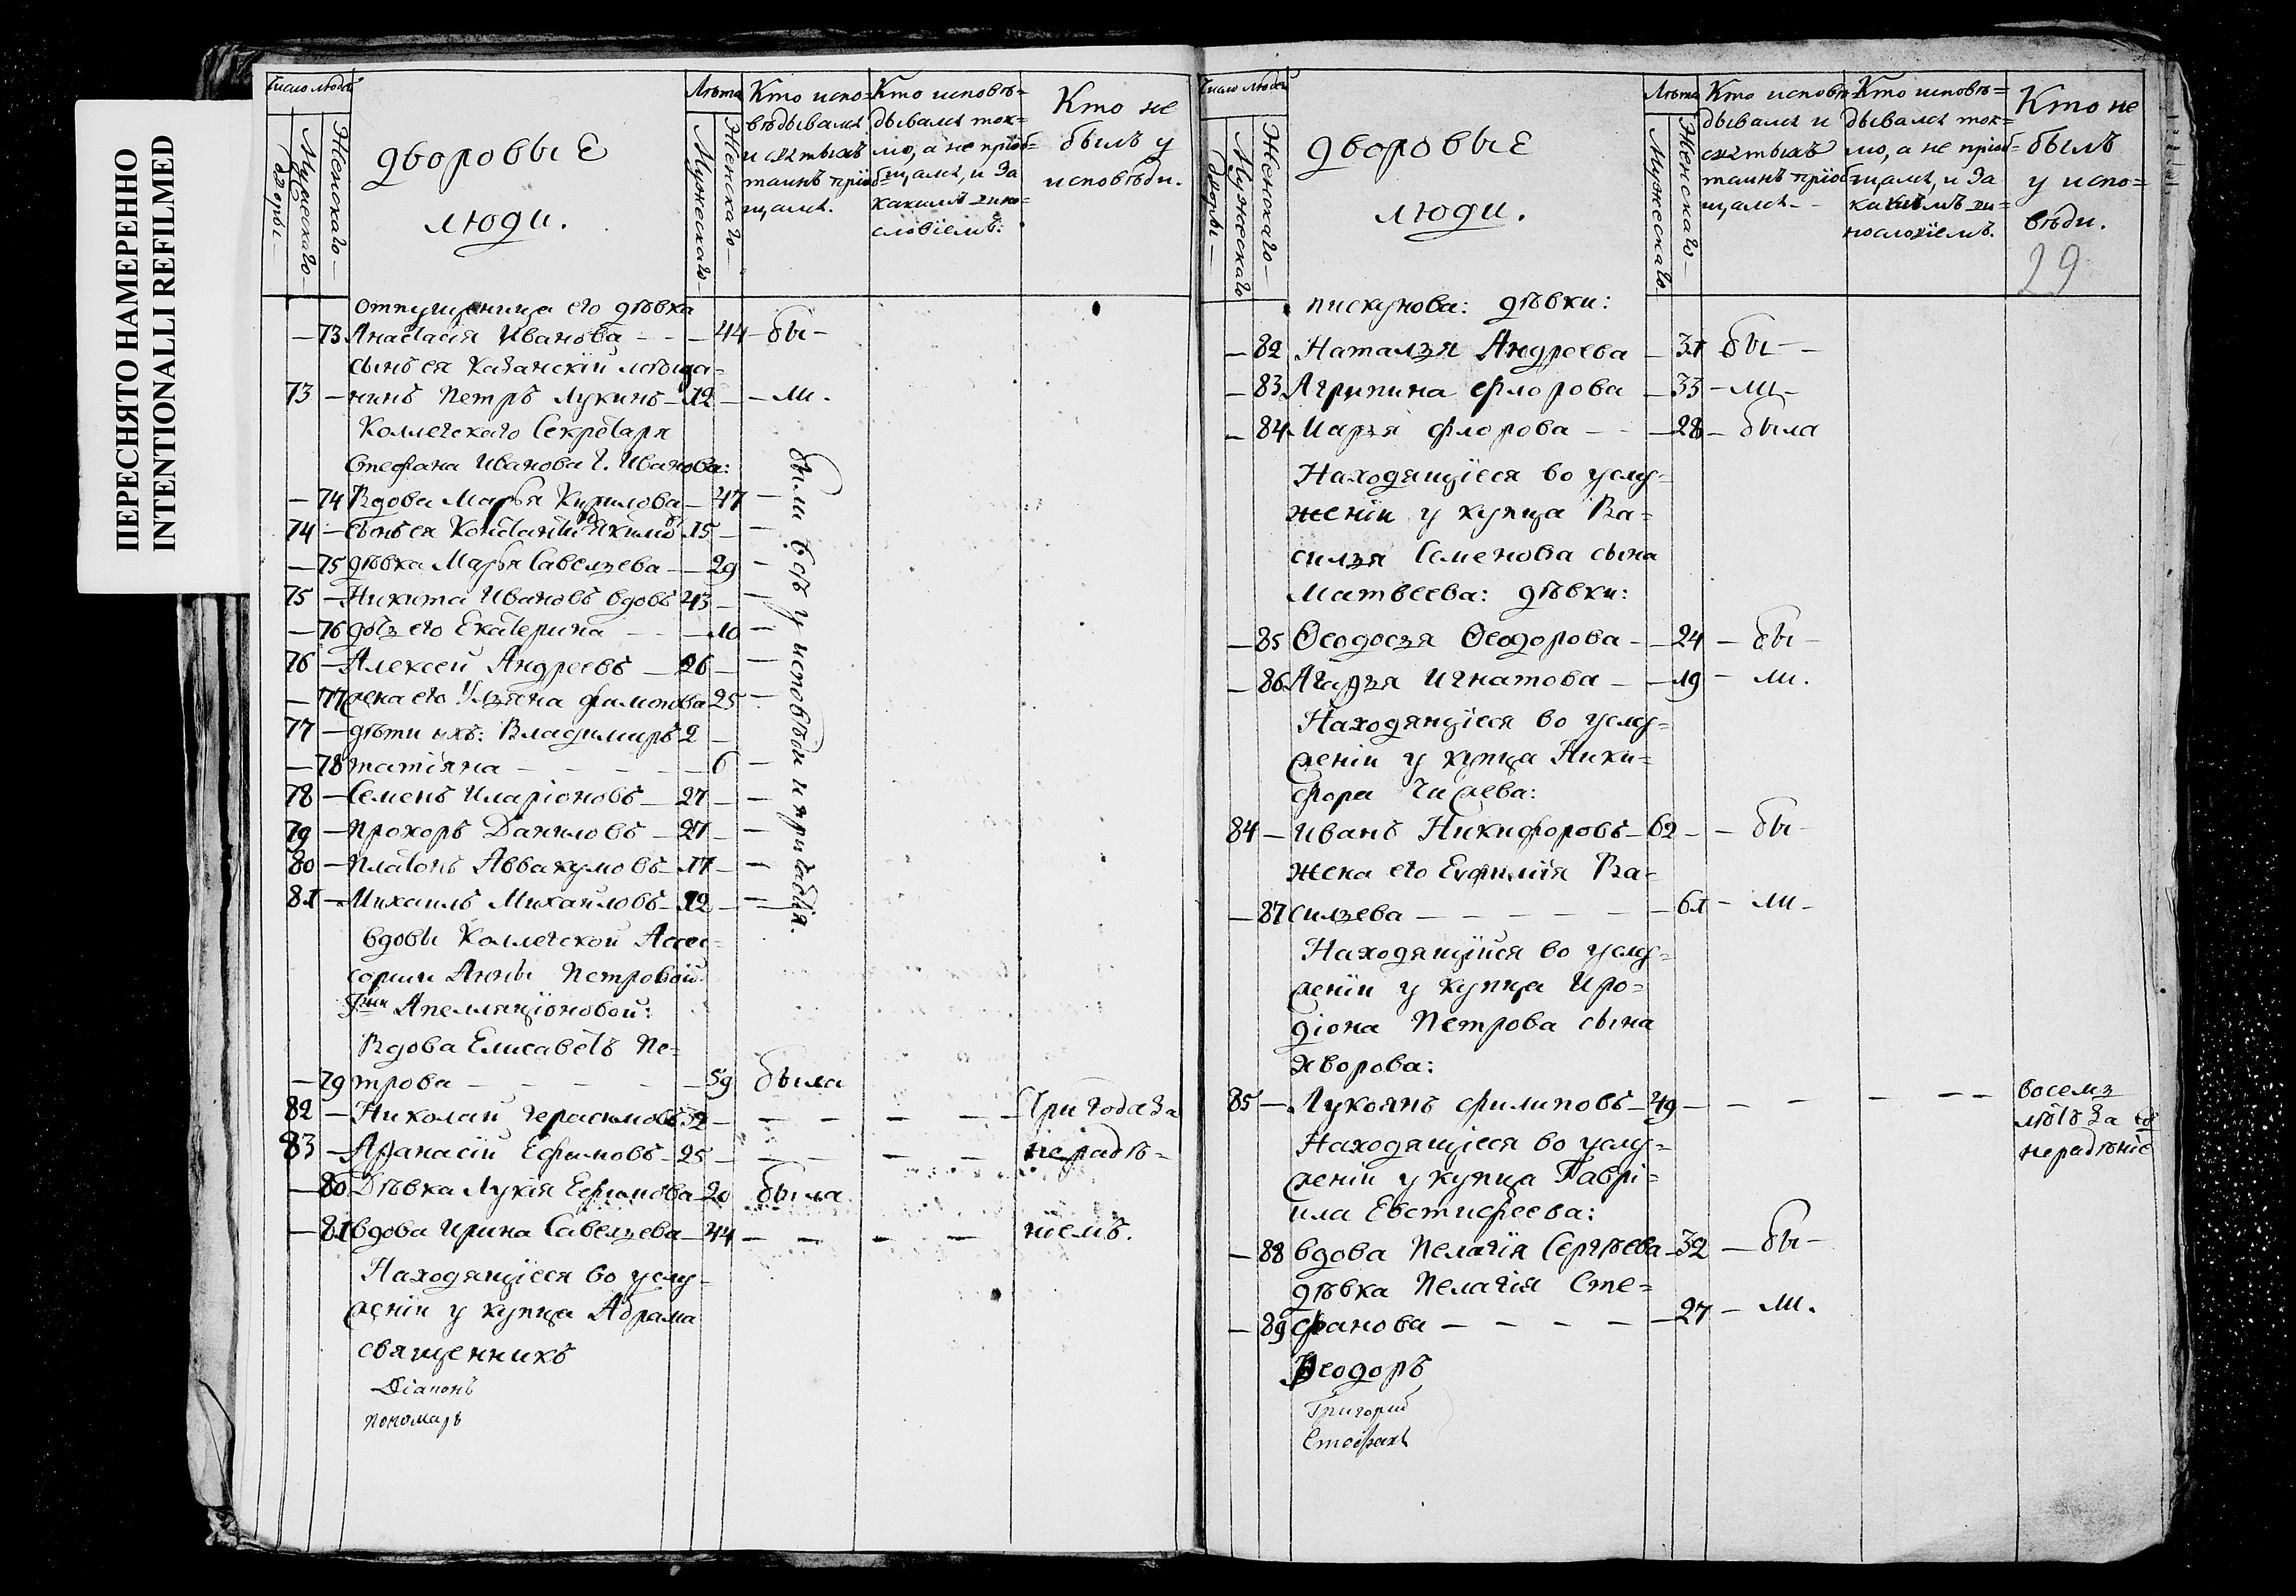 ПЕРЕСНЯТО НАМЕРЕННО
INTENTIONALLI REFILMED
Число людей
Дворы
Мужескаго
Женскаго
дворовые
люди.
Лѣта
Мужескаго
Женскаго
Кто испо=
вѣдывался
и святыхъ
таинъ пріоб
щался.
Кто исповѣ=
дывался ток=
мо, а не пріоб=
щался, и за
какимъ вино=
словіемъ.
Кто не
былъ у
исповѣди.
отпущеница его дѣвка
— 73 Анастасія Иванова — — 44 — бы —
сынъ ея Казанскій мѣща=
73 — нинъ Петръ Лукинъ — 12 — — ли.
Коллегскаго Секретаря
Стефана Иванова Г. Иванова:
— 74 Вдова Марья Кирилова — 47 —
74 — сынъ ея Константинъ Якимовъ 15 —
— 75 дѣвка Марья Савельева — 29 —
75 — Никита Ивановъ вдовъ 43 —
— 76 дочь его Екатерина — — 10 —
76 — Алексей Андреевъ — 26 —
— 77 жена его Ульяна Филимонова 25 —
77 — дѣти ихъ: Владимиръ 2 —
— 78 татіяна — — — — 6 —
78 — Семенъ Иларіоновъ — 27 —
79 — Прохоръ Даниловъ — 27 —
80 — Платонъ Аввакумовъ — 17 —
81 — Михаилъ Михайловъ — 12 —
были всѣ у исповѣди и причастія.
вдовы Коллегской Ассес=
сорши Анны Петровой
Гжи Апелляціоновой:
Вдова Елисаветъ Пе=
— 79 трова — — — — — 59 была
82 — Николай Герасимовъ 32 — — — — — три года за
83 — Афанасій Ефимовъ — 25 — — — — — нерадѣ=
— 80 Дѣвка Лукія Ефимова — 20 была
— 81 вдова Ирина Савельева — 44 — — — — ніемъ.
Находящіеся во услу=
женіи у купца Абрама
священникъ
Діаконъ
пономарь
Число людей
Дворы
Мужескаго
Женскаго
дворовые
люди.
Лѣта
Мужескаго
Женскаго
Кто исповѣ=
дывался и
святыхъ
таинъ пріоб
щался —
Кто исповѣ=
дывался ток=
мо, а не пріоб=
щался, и за
какимъ ви=
нословіемъ.
Кто не
былъ
у испо=
вѣди.
29
пискунова: дѣвки:
— 82 Наталья Андреева — 31 бы —
— 83 Агрипина Флорова — 33 — ли —
— 84 Марья Флорова — — 28 — была
Находящіеся во услу=
женіи у купца Ва=
силья Семенова сына
Матвеева: дѣвки:
— 85 Ѳеодосья Ѳеодорова — — 24 — бы —
— 86 Агафья Игнатова — — 19 — ли.
Находящіеся во услу=
женіи у купца Ники=
фора Чижева:
84 — Иванъ Никифоровъ — 62 — — бы —
жена его Евфимія Ва=
— 87 сильева — — — — — 61 — ли —
Находящійся во услу=
женіи у купца Иро=
діона Петрова сына
Хворова:
85 — Лукоянъ Филиповъ — 49 — — — — — — восемь
лѣтъ за
нерадѣніе
Находящіеся во услу=
женіи у купца Гаврі=
ила Евстифеева:
— 88 вдова Пелагія Сергѣева — 32 — бы —
дѣвка Пелагія Сте=
— 89 фанова — — — — — 27 — ли.
Ѳеодоръ
Григорий
Стефанъ